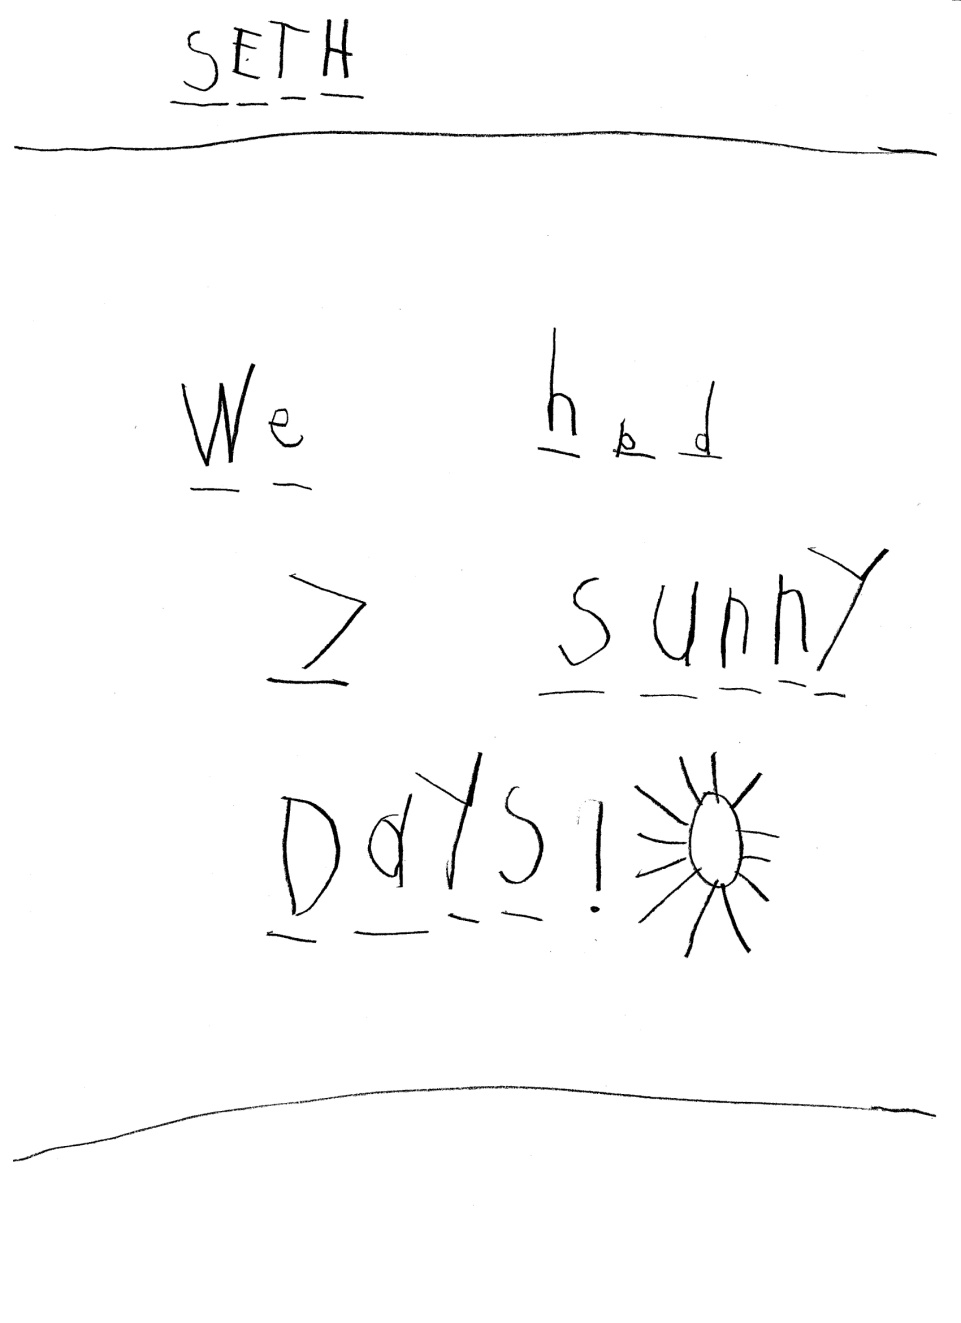 SETH
We had
7 sunny
Days!